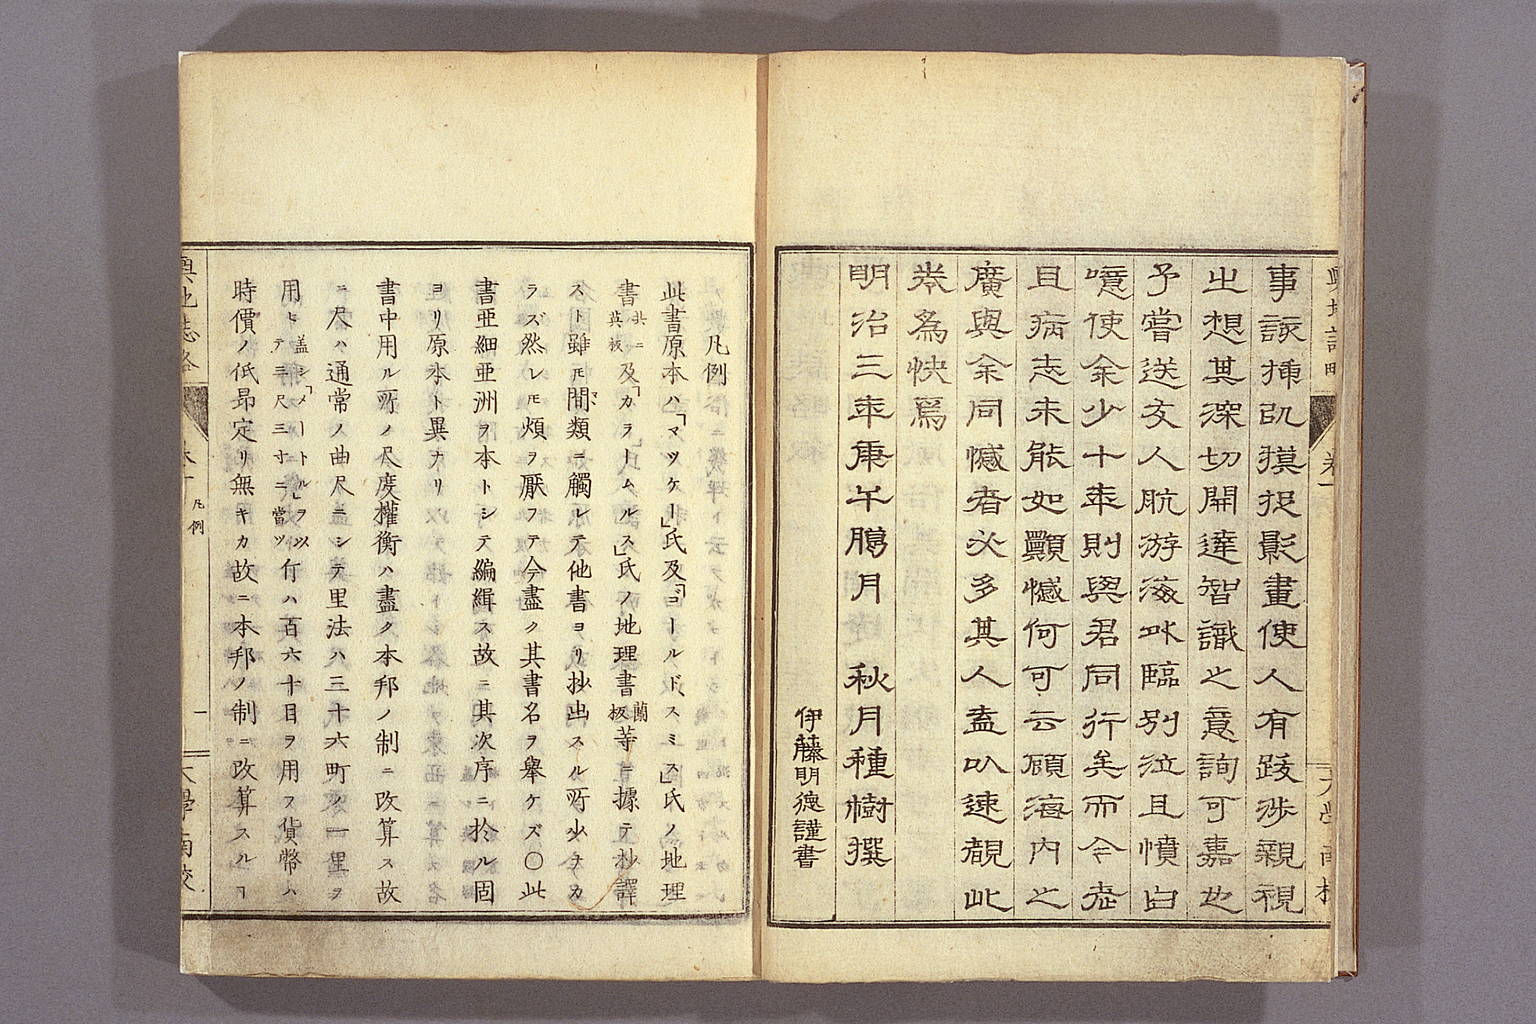 輿地誌略
卷一
大學南校
事詼揷訊摸捉影畫使人有跋渉親視
之想其深切開達智識之意詢可嘉也
予嘗送友人航游海外臨別泣且憤曰
噫使余少十年則與君同行矣而今老
且病志未能如顯憾何可云願海内之
廣與余同憾者必多其人盍以速覩此
巻爲快焉
明治三年庚午臈月　秋月種樹撰
伊藤明德謹書
凡例
此書原本ハ「マツケー」氏及「ゴールド、スミス」氏ノ地理
書共ニ英板及「カラームルス」氏ノ地理書蘭板等ニ據テ抄譯
スト雖モ間類ニ觸レテ他書ヨリ抄出スル所少ナカ
ラズ然レモ煩ヲ厭フテ今盡ク其書名ヲ擧ケズ〇此
書亞細亞洲ヲ本トシテ編緝ス故ニ其次序ニ於ル固
ヨリ原本ト異ナリ
書中用ル所ノ尺度權衡ハ盡ク本邦ノ制ニ改算ス故
ニ尺ハ通常ノ曲尺ニシテ里法ハ三十六町ノ一里ヲ
用ヒ盖シ「メートル」ヲ以テ三尺三寸ニ當ツ斤ハ百六十目ヲ用ス貨幣ハ
時價ノ低昻定リ無キカ故ニ本邦ノ制ニ改算スルヿ
輿地誌略
卷一
凡例
一
大學南校